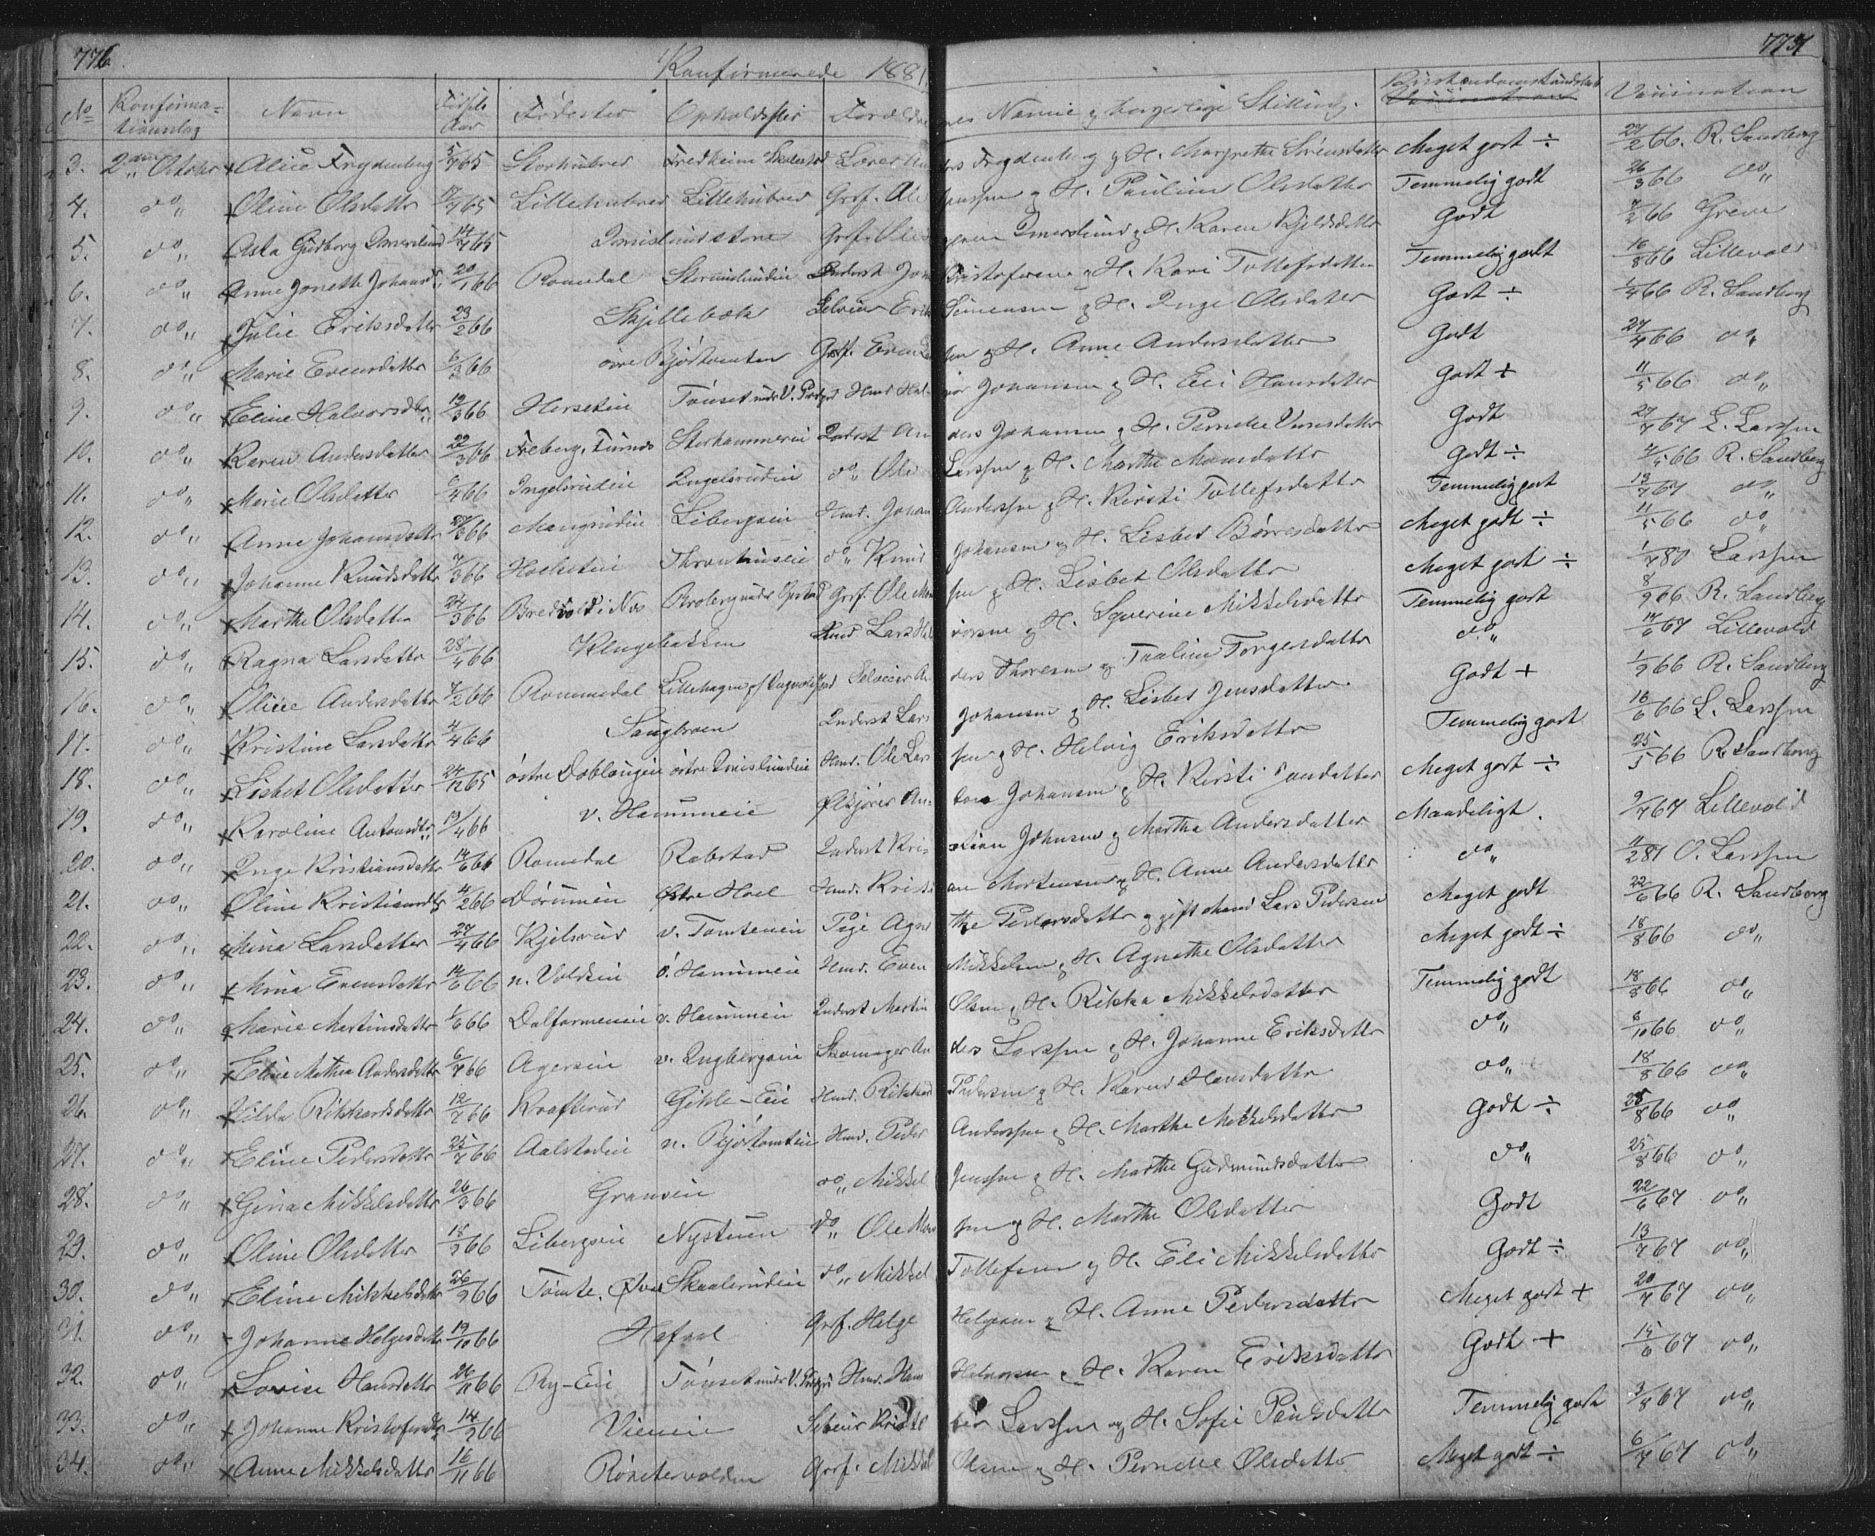 776 777
Konfirmerede 1881.
No Konfirmationsdag Navn Fødselsaar Fødested Opholdssted Forældrenes Navne og borgerlige Stilling. Kristendomskundskab Vaccination
3. 2den Oktober Alice Frydenberg 5/7 65 Storhubred Fredheim Lærer Anders Frydenberg og H. Margrethe Sørensdatter Meget godt ÷ 27/2 66. R. Sandberg
4. do „ Oline Olsdatter 17/7 65 Lillehubred Lillehubred Grf. Ole Jenssen og H. Pauline Olsdatter Temmelig godt 26/3 66 do „
5. do „ Asta Gudborg Imerslund 14/7 65 Imislundstore Grf. Ole Imerslund og H. Karen Kjeldsdatter Godt 7/2 66 Greve
6. do „ Anne Jonette Johansd. 20/1 66 Romedal Inderst Kristofersen og H. Kari Tollefsdatter Temmelig godt 16/8 66 Lillevold
7. do „ Julie Eriksdatter 23/2 66 Skjillebæk Selveier Erik Simensen og H. Inge Olsdatter Godt ÷ 1/7 66 R. Sandberg
8. do „ Marie Evensdatter 6/3 66 øvre Bjørtomten Grf. Even og H. Anne Andersdatter Godt 27/4 66 do „
9. do „ Eline Halvorsdtr 19/3 66 Hersetin Tønset under V. Hmd Halvor Johansen og H. Eli Hansdatter Godt + 11/5 66 do „
10. do „ Karen Andersdatter 22/3 66 Freberg, Furnes Storhammerei Inderst Anders Johansen og H. Pernelle Godt 27/7 67 L. Larssen
11. do „ Marie Olsdatter 6/4 66 Ingelsrudeie Ingelsrudeie do „ Ole Larssen og H. Marthe Monsdatter Godt ÷ 7/5 66 R. Sandberg
12. do „ Anne Johansdatter 66 Mangrudeie Libergseie Hmd. Johan Anderssen og H. Kirsti Tollefsdatter Temmelig godt 13/7 67 do „
13. do „ Johanne Knudsdatter 7/3 66 do „ Knud Johansen og H. Lisbet Børresdatter Meget godt ÷ 11/5 66 do „
14. do „ Marthe Olsdatter 24/3 66 Grf. Ole H. Lisbet Olsdatter Meget godt ÷ 1/7 80 Larssen
15. do „ Ragna Larsdatter 28/4 66 Klingebakken Lars H. Severine Mikkelsdatter Temmelig godt 8/9 66 R. Sandberg
16. do „ Oline Andersdatter 7/2 66 Rommedal Selveier Anders Thoresen og Pauline Torgersdatter do „ 14/6 67 Lillevold
17. do „ Kristine Larsdatter 4/4 66 Inderst Lars Johansen og H. Lisbet Jensdatter Godt + 1/9 66 R. Sandberg
18. do „ Lisbet Olsdatter 24/12 65 østre Doblougeie østre Imislundeie Hmd. Ole Larssen og H. Helvig Eriksdatter Temmelig godt 16/6 66 L. Larssen
19. do „ Karoline Antonsdtr 19/4 66 v. Hammeie Anton Johansen og H. Kirsti Meget godt ÷ 25/5 66 R. Sandberg
20. do „ Inge Kristiansdatter 14/6 66 Romedal Robstad Inderst Kristian Johnsen og Martha Andersdatter Maadeligt. 9/7 67 Lillevold
21. do „ Oline Kristiansdtr 4/2 66 Østre Hoel Hmd. Kristian Mortensen og H. Anne Andersdatter do „ 4/2 81 O. Larssen
22. do „ Mina Larsdatter 27/4 66 Kjelsrud v. Tomteneie Pige Agnethe Pedersdatter og gift Mand Lars Pedersen Meget godt 22/6 66 R. Sandberg
23. do „ Mina Evensdatter 14/6 66 n. Voldeie Hammeie Hmd. Even Mikkelsen og H. Agnethe Olsdatter Meget godt ÷ 18/8 66 do „
24. do „ Marie Martinsdatter 66 Dalfarmeneie v. Hammeie Inderst Martin Olsen og H. Rikka Mikkelsdatter Temmelig godt 18/8 66 do „
25. do „ Eline Mathea Andersdatter 6/7 66 Ageseie v. Ingbergseie Skomager Anders Larssen og H. Johanne Eriksdatter do „ 6/10 66 do „
26. do „ Hilda Rikkardsdatter 12/7 66 Kraftsrud Gihle-Eie Hmd. Rikkard Pedersen og H. Karen Hansdatter do „ 18/8 66 do „
27. do „ Eline Pedersdatter 25/7 66 Aalstadeie n. Bjørtomteie Hmd. Peder Anderssen og H. Marthe Mikkelsdatter Godt ÷ 25/8 66 do „
28. do „ Gina Mikkelsdatter 26/3 66 Granseie do „ Mikkel Jenssen og H. Marthe Gudmundsdatter do „ 25/8 66 do „
29. do „ Oline Olsdatter 66 Libergseie Nystuen do „ Ole H. Marthe Olsdatter Godt 22/6 67 do „
30. do „ Eline Mikkelsdatter 26/9 66 Tomte, Øvre Skaalerudeie do „ Mikkel Tollefsen og H. Eli Mikkelsdatter Godt ÷ 13/7 67 do „
31. do „ Johanne Helgesdatter 19/10 66 Hafsal Grf. Helge Helgesen og H. Anne Pedersdatter Meget godt + 20/7 67 do „
32. do „ Lovise Hansdatter 26/11 66 Ry-Eie Tønset under V. Hmd. Hans Halvorsen og H. Karen Eriksdatter Godt + 15/6 67 do „
33. do „ Johanne Kristofersdtr 14/9 66 Vieneie Larssen og H. Sofie Paulsdatter Temmelig godt 3/8 67 do „
34. do „ Anne Mikkelsdatter 16/11 66 Røneservolden Grf. Mikkel Olsen og H. Pernelle Olsdatter Meget godt ÷ 6/7 67 do „